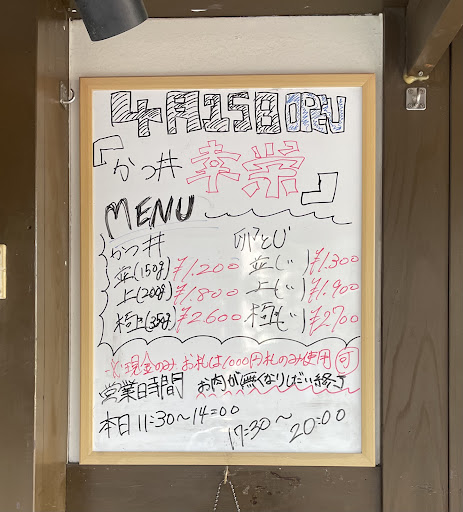 4月15日OPEN
『かつ丼 幸栄』
MENU
かつ丼
並(150g) ¥1,200
上(200g) ¥1,800
極上(350g) ¥2,600
卵とじ
並(〃) ¥1,300
上(〃) ¥1,900
極(〃) ¥2700
※現金のみ お札は1,000円札のみ使用可
営業時間 お肉が無くなりしだい終了
本日 11:30〜14:00
17:30〜20:00